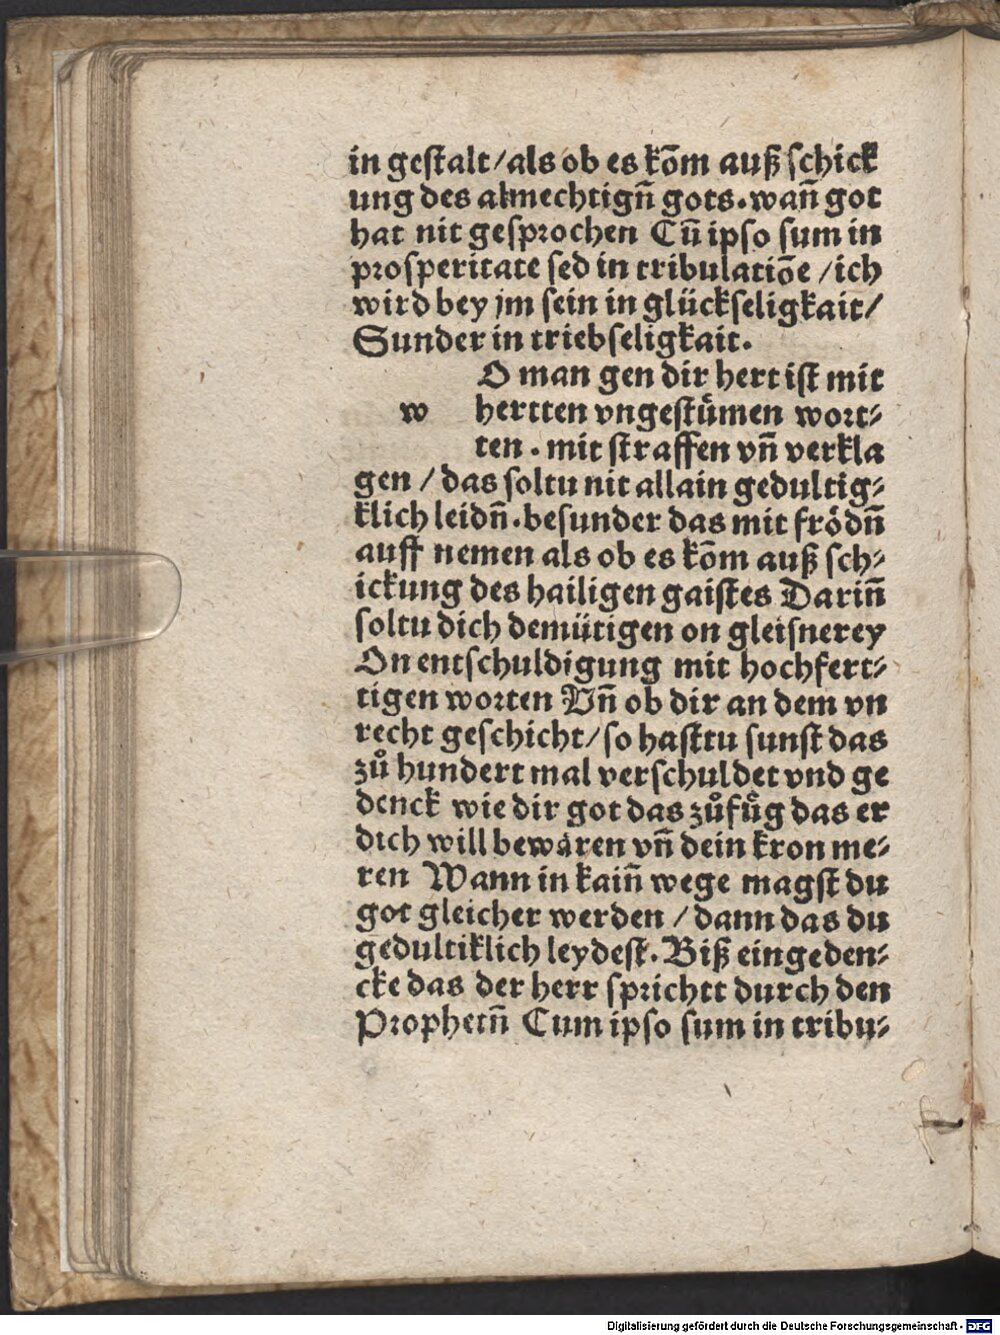 in gestalt/als ob es kōm auß schick
ung des almechtign̄ gots.wan̄ got
hat nit gesprochen Cū ipso sum in
prosperitate sed in tribulatiōe /ich
wird bey jm sein in glückseligkait/
Sunder in triebseligkait.
O man gen dir hert ist mit
w hertten vngestümen wort⸗
ten . mit straffen vn̄ verkla
gen / das soltu nit allain gedultig⸗
klich leidn̄.besunder das mit frödn̄
auff nemen als ob es kōm auß sch⸗
ickung des hailigen gaistes Darin̄
soltu dich demütigen on gleisnerey
On entschuldigung mit hochfert⸗
tigen worten Vn̄ ob dir an dem vn
recht geschicht/so hasttu sunst das
zů hundert mal verschuldet vnd ge
denck wie dir got das zůfüg das er
dich will bewaren vn̄ dein kron me⸗
ren Wann in kain̄ wege magst du
got gleicher werden / dann das du
gedultiklich leydest. Biß eingeden⸗
cke das der herr sprichtt durch den
Prophetn̄ Cum ipso sum in tribu⸗
Digitalisierung gefördert durch die Deutsche Forschungsgemeinschaft - DFG